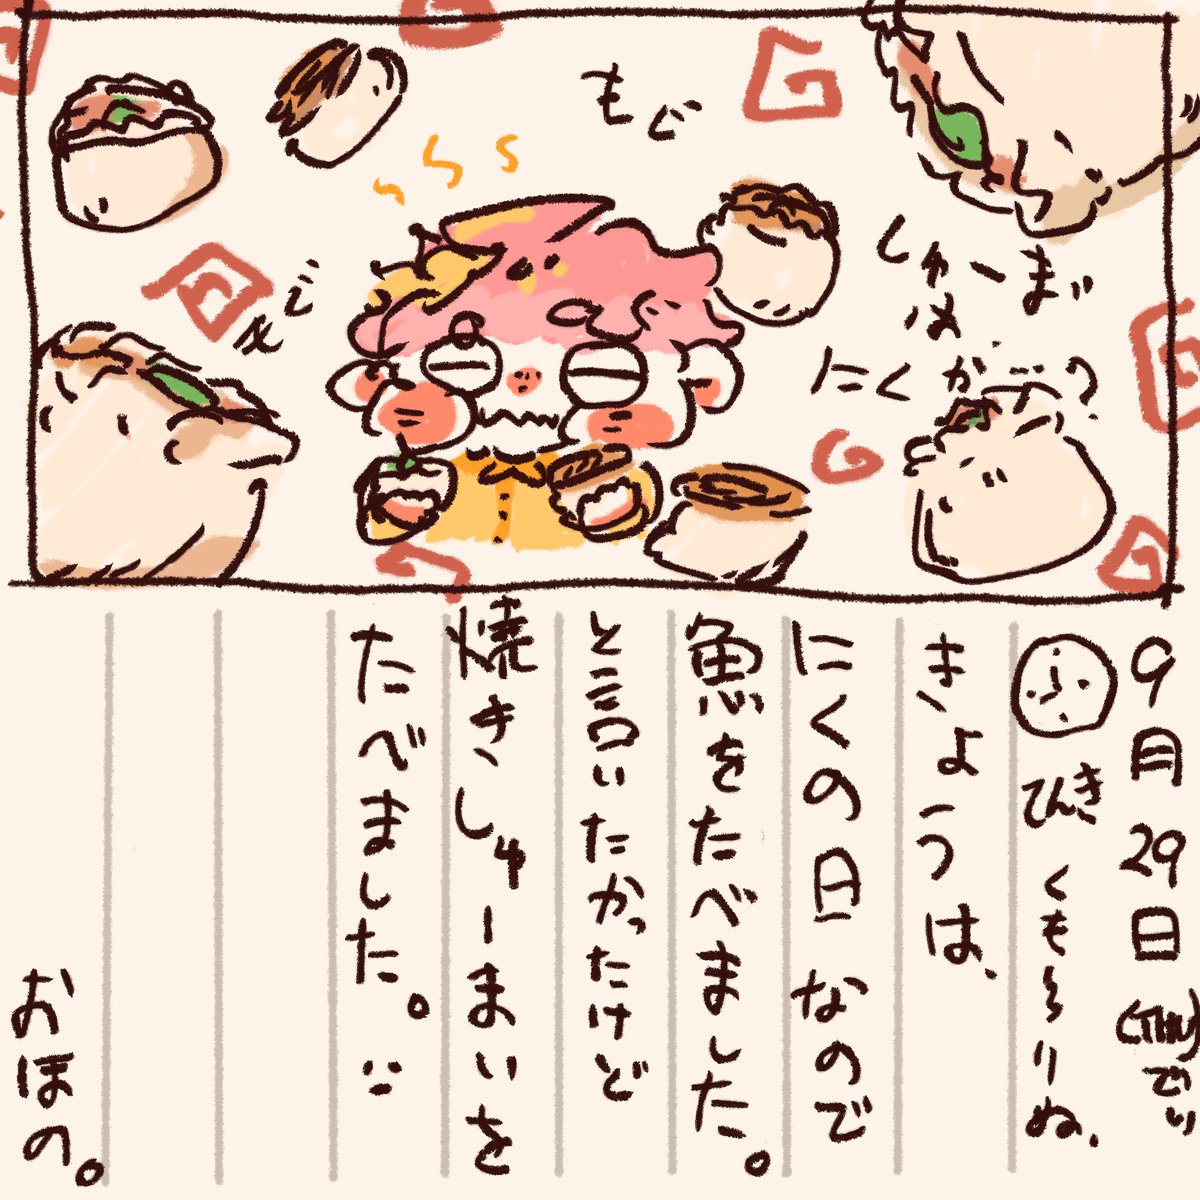 もぐ
もぐ
しゅーまい
にく
9月29日(THU)
きょうは、
にくの日なので
魚をたべました。
と言いたかったけど
焼きしゅーまいを
たべました。
おほの。